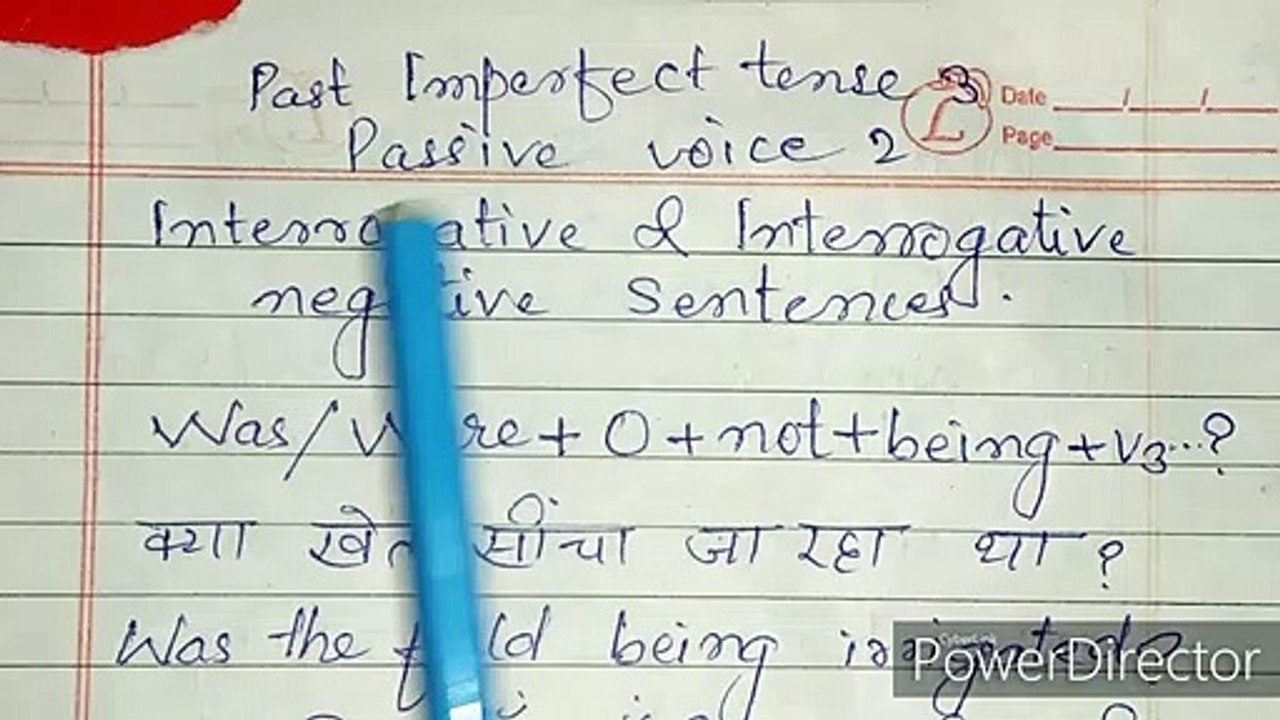 Past Imperfect tense 3
Passive voice 2
L
Date
Page
Interrogative & Interrogative
negative Sentences.
Was/Were + O + not + being + V3...?
क्या खेत सींचा जा रहा था ?
Was the field being irrigated?
PowerDirector